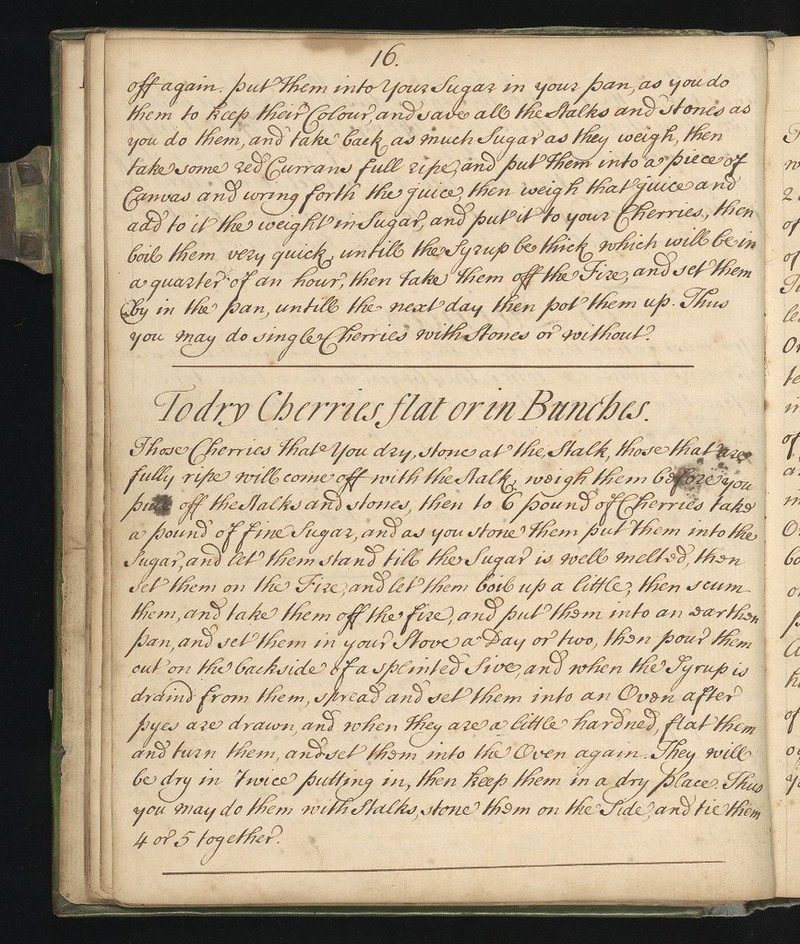 16.
off again. put them into Your Sugar in your pan, as you do
them to keep their Colour, and save all the Stalks and Stones as
you do them, and take back as much Sugar as they weigh, then
take some red Currans full ripe, and put them into a piece of
Canvas and wring forth the juice, then weigh that juice and
add to it the weight in Sugar, and put it to your Cherries, then
boil them very quick, untill the Syrup be thick, which will be in
a quarter of an hour, then take them off the Fire, and set them
by in the pan, untill the next day then pot them up. Thus
you may do single Cherries with Stones or without.
To dry Cherries flat or in Bunches.
Those Cherries that You dry, stone at the Stalk, those that are
fully ripe will come off with the Stalk, weigh them before you
pull off the Stalks and stones, then to 6 pound of Cherries take
a pound of fine Sugar, and as you stone them put them into the
Sugar, and let them stand till the Sugar is well melted, then
set them on the Fire, and let them boil up a little, then scum
them, and take them off the fire, and put them into an earthen
pan, and set them in your Stove a Day or two, then pour them
out on the backside of a splinted Sive, and when the Syrup is
draind from them, spread and set them into an Oven after
pyes are drawn, and when they are a little hardned, flat them
and turn them, and set them into the Oven again. They will
be dry in Twice putting in, then keep them in a dry place. Thus
you may do them with Stalks, stone them on the Side, and tie them
4 or 5 together.